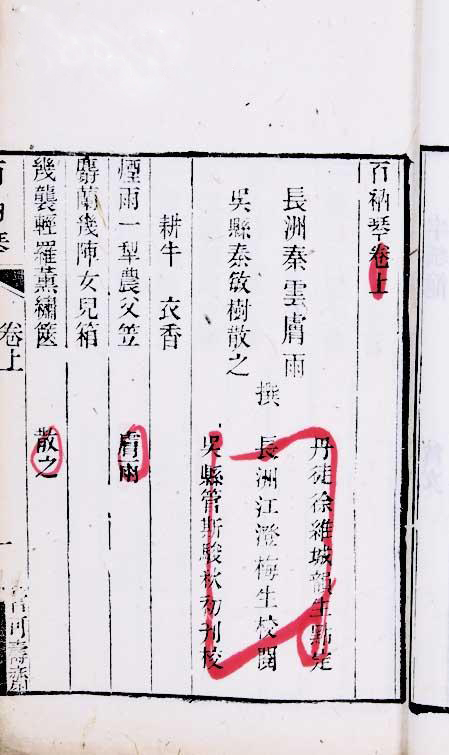 百衲琴卷上
長洲秦雲膚雨
吳縣秦敏樹散之
撰
丹徒徐維城韻生點定
長洲江澄梅生校閱
吳縣管斯駿秋初刊校
耕牛 衣香
煙雨一犁農父笠 膚雨
麝蘭幾陣女兒箱
幾襲輕羅薰繡篋 散之
卷上
一